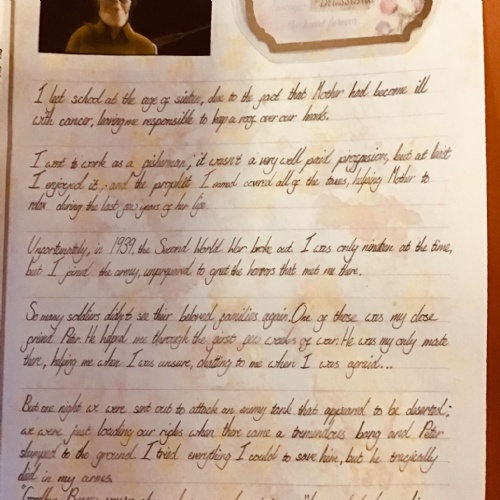 the heart forever.
I left school at the age of sixteen, due to the fact that Mother had become ill
with cancer, leaving me responsible to keep a roof over our heads.
I went to work as a fisherman; it wasn't a very well paid profession, but at least
I enjoyed it, and the prophit I earned covered all of the taxes, helping Mother to
relax during the last few years of her life.
Unfortunately, in 1939, the Second World War broke out. I was only nineteen at the time,
but I joined the army, unprepared to greet the horrors that met me there.
So many soldiers didn't see their beloved families again. One of those was my close
friend Peter. He helped me through the first few weeks of war. He was my only mate
there, helping me when I was unsure, chatting to me when I was afraid...
But one night we were sent out to attack an enemy tank that appeared to be deserted;
we were just loading our rifles when there came a tremendous bang and Peter
slumped to the ground. I tried everything I could to save him, but he tragically
died in my arms.